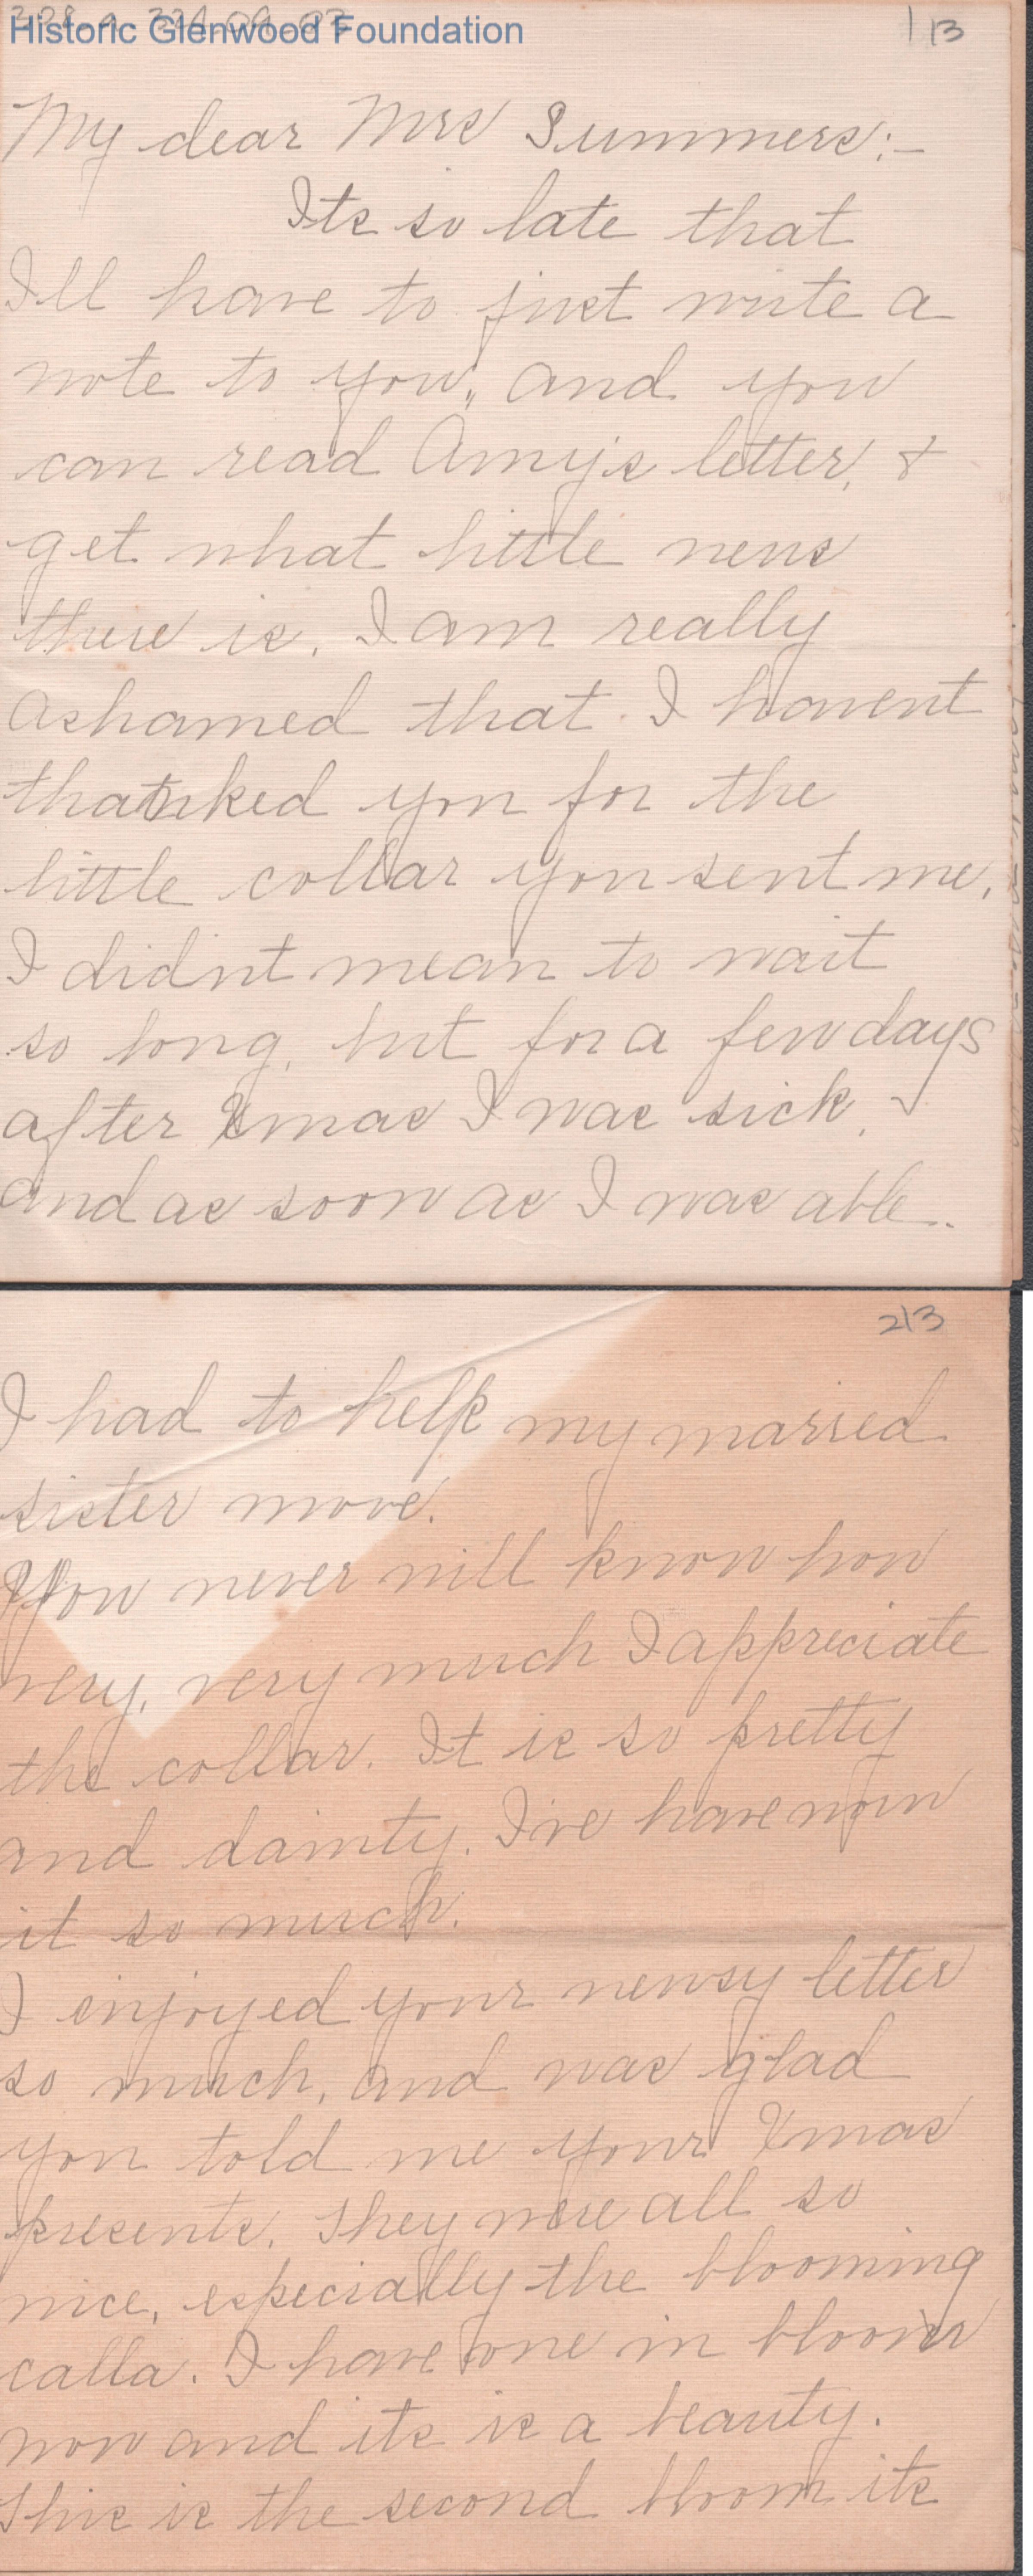 328.1.334.09.03
Historic Glenwood Foundation
1/3
My dear Mrs Summers:-
Its so late that
I'll have to just write a
note to you, and you
can read Amy's letter, &
get what little news
there is. I am really
ashamed that I havent
thanked you for the
little collar you sent me.
I didnt mean to wait
so long, but for a few days
after Xmas I was sick,
and as soon as I was able
2/3
I had to help my married
sister move.
You never will know how
very, very much I appreciate
the collar. It is so pretty
and dainty. I've have worn
it so much.
I enjoyed your newsy letter
so much, and was glad
you told me your Xmas
presents. They were all so
nice, especially the blooming
calla. I have one in bloom
now and its is a beauty.
This is the second bloom its